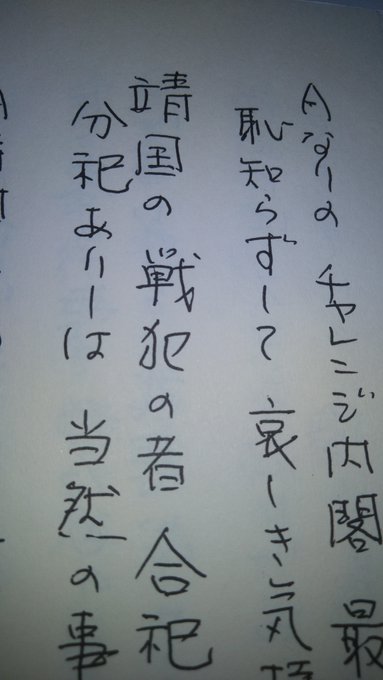 チャレンジ内閣 最
恥知らずして 哀しき気
靖国の戦犯の者 合祀
分祀ありしは 当然の事